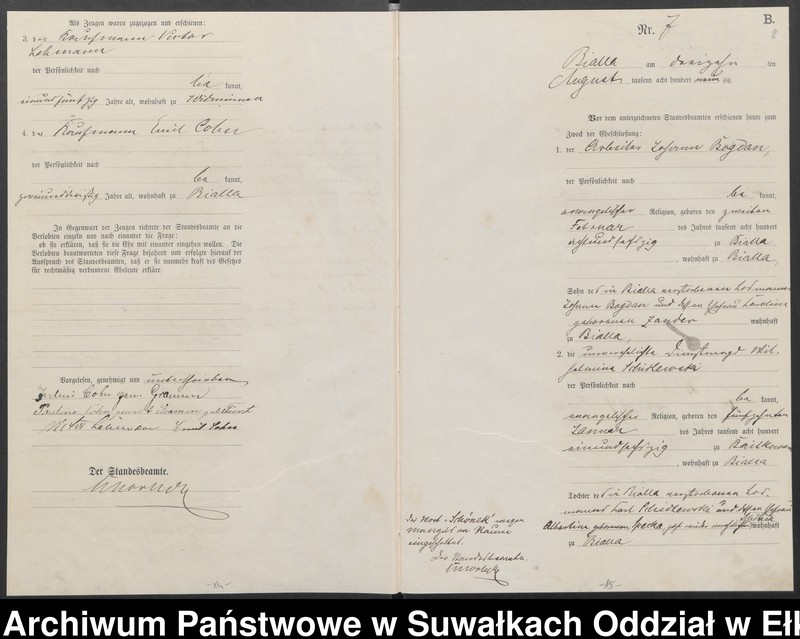 Als Zeugen waren zugezogen und erschienen:
3. der Kaufmann Victor
Lehmann
der Persönlichkeit nach
be kannt,
einundfünfzig Jahre alt, wohnhaft zu Widminnen
4. der Kaufmann Emil Cohn
der Persönlichkeit nach
be kannt,
zweiunddreißig Jahre alt, wohnhaft zu Bialla
In Gegenwart der Zeugen richtete der Standesbeamte an die
Verlobten einzeln und nach einander die Frage:
ob sie erklären, daß sie die Ehe mit einander eingehen wollen. Die
Verlobten beantworteten diese Frage bejahend und erfolgte hierauf der
Ausspruch des Standesbeamten, daß er sie nunmehr kraft des Gesetzes
für rechtmäßig verbundene Eheleute erkläre.
Vorgelesen, genehmigt und unterschrieben
Julius Cohn gen. Gramm
Pauline Cohn genannt Gramm geb.
Victor Lehmann Emil Cohn
Der Standesbeamte.
-14-
B.
8
Nr. 7
Bialla am dreizehn ten
August tausend acht hundert neun zig.
Vor dem unterzeichneten Standesbeamten erschienen heute zum
Zweck der Eheschließung:
1. der Arbeiter Johann Bogdan,
der Persönlichkeit nach
be kannt,
evangelischer Religion, geboren den zweiten
Februar des Jahres tausend acht hundert
achtundsechzig zu Bialla
, wohnhaft zu Bialla,
Sohn des in Bialla verstorbenen Losmanns
Johann Bogdan und dessen Ehefrau Caroline
geborenen Zander wohnhaft
zu Bialla,
2. die unverehelichte Dienstmagd Wil-
helmine Schidlewski
der Persönlichkeit nach
be kannt,
evangelischer Religion, geboren den fünfzehnten
Januar des Jahres tausend acht hundert
einundsechzig zu Drittkowen
, wohnhaft zu Bialla
Tochter des in Bialla verstorbenen Los-
manns Karl Schidlowski und dessen Ehefrau
Albertine geborenen jetzt wieder verehelichte Schönek wohnhaft
zu Bialla
Das Wort „Schönek" wegen
Mangels an Raum
eingeschaltet.
Der Standesbeamte.
-15-
Archiwum Państwowe w Suwałkach Oddział w Eł